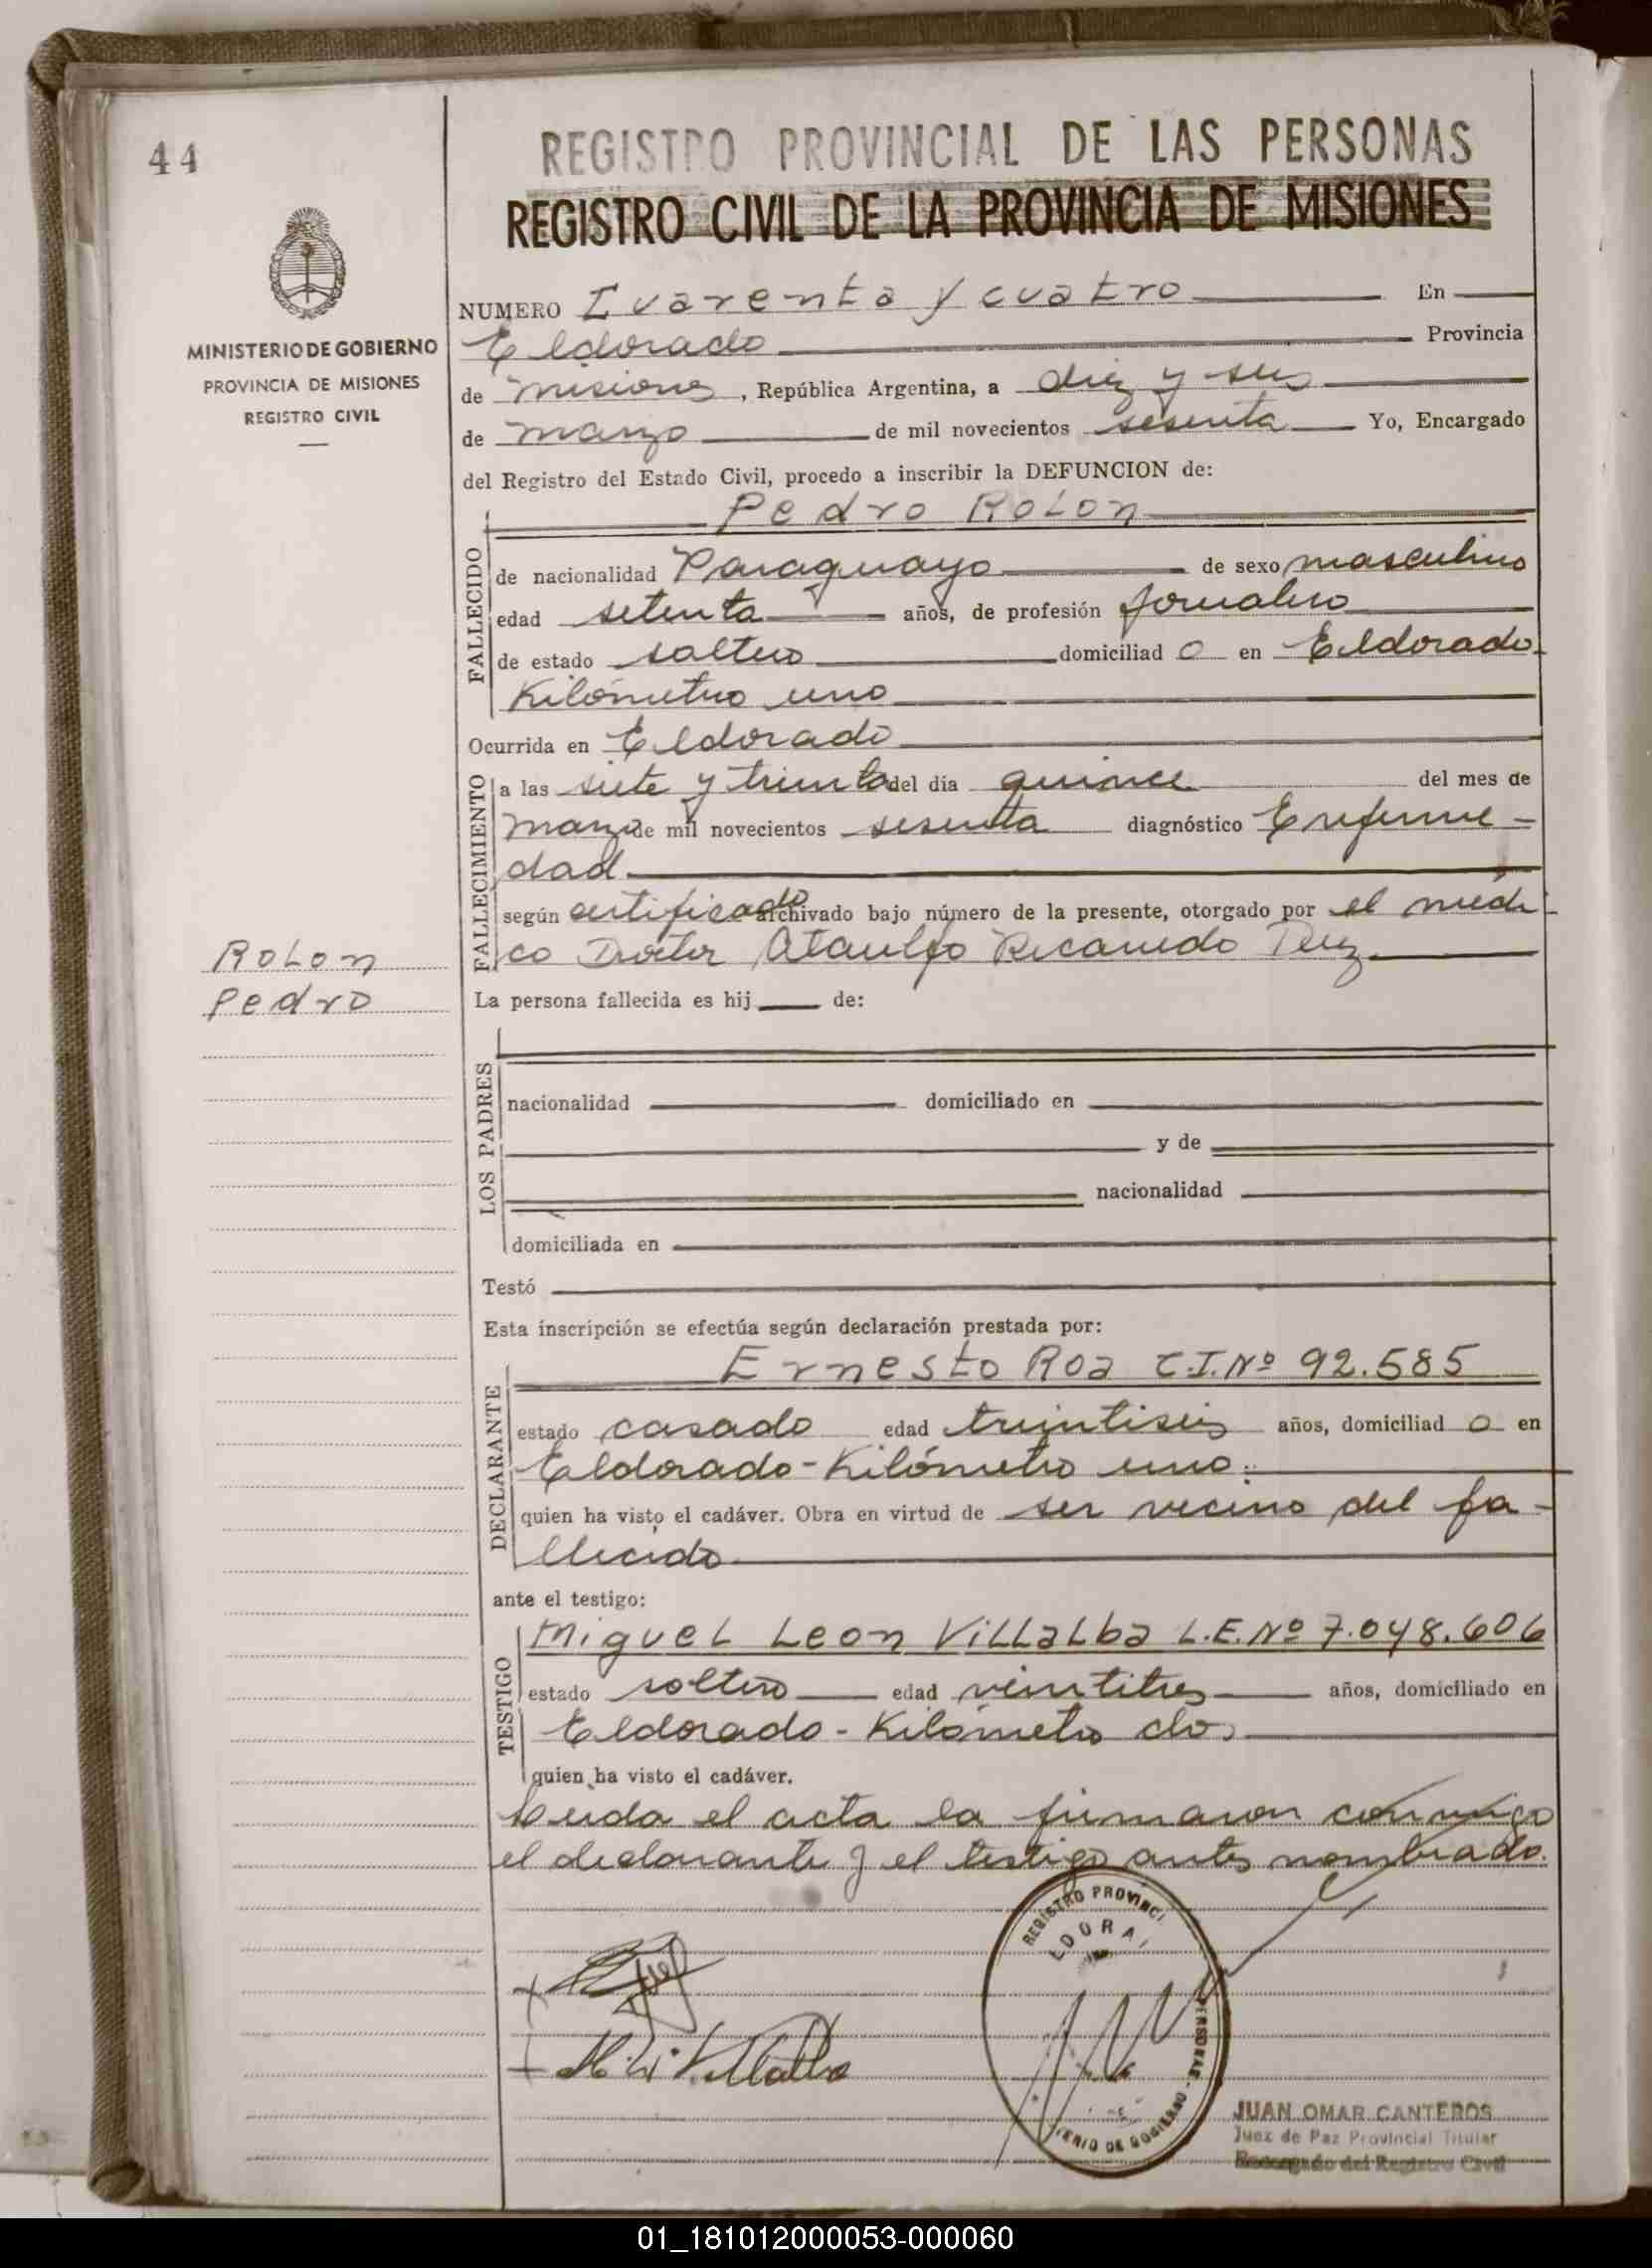 44
REGISTRO PROVINCIAL DE LAS PERSONAS
REGISTRO CIVIL DE LA PROVINCIA DE MISIONES
MINISTERIO DE GOBIERNO
PROVINCIA DE MISIONES
REGISTRO CIVIL
NUMERO Cuarenta y cuatro En
Eldorado Provincia
de misiones, República Argentina, a diez y seis
de marzo de mil novecientos sesenta Yo, Encargado
del Registro del Estado Civil, procedo a inscribir la DEFUNCION de:
Pedro Rolon
FALLECIDO
de nacionalidad Paraguayo de sexo masculino
edad setenta años, de profesión jornalero
de estado soltero domiciliado en Eldorado
Kilómetro uno
Ocurrida en Eldorado
FALLECIMIENTO
a las siete y treinta del día quince del mes de
marzo de mil novecientos sesenta diagnóstico Enferme-
dad
según certificado archivado bajo número de la presente, otorgado por el médi
co Doctor Ataulfo Ricaredo
Rolon
Pedro
La persona fallecida es hij de:
LOS PADRES
nacionalidad domiciliado en
y de
nacionalidad
domiciliada en
Testó
Esta inscripción se efectúa según declaración prestada por:
DECLARANTE
Ernesto Roa C.I.Nº 92.585
estado casado edad treintiseis años, domiciliado en
Eldorado-Kilómetro uno.
quien ha visto el cadáver. Obra en virtud de ser vecino del fa-
llecido
ante el testigo:
TESTIGO
Miguel Leon Villalba L.E.Nº 7.048.606
estado soltero edad veintitres años, domiciliado en
Eldorado-Kilómetro dos
quien ha visto el cadáver.
Leida el acta la firmaron conmigo
el declarante y el testigo antes nombrado.
REGISTRO PROVINCI
LDORA
PERSONAS
TERIO DE GOBIERNO
Villalba
JUAN OMAR CANTEROS
Juez de Paz Provincial Titular
Encargado del Registro Civil
01_181012000053-000060